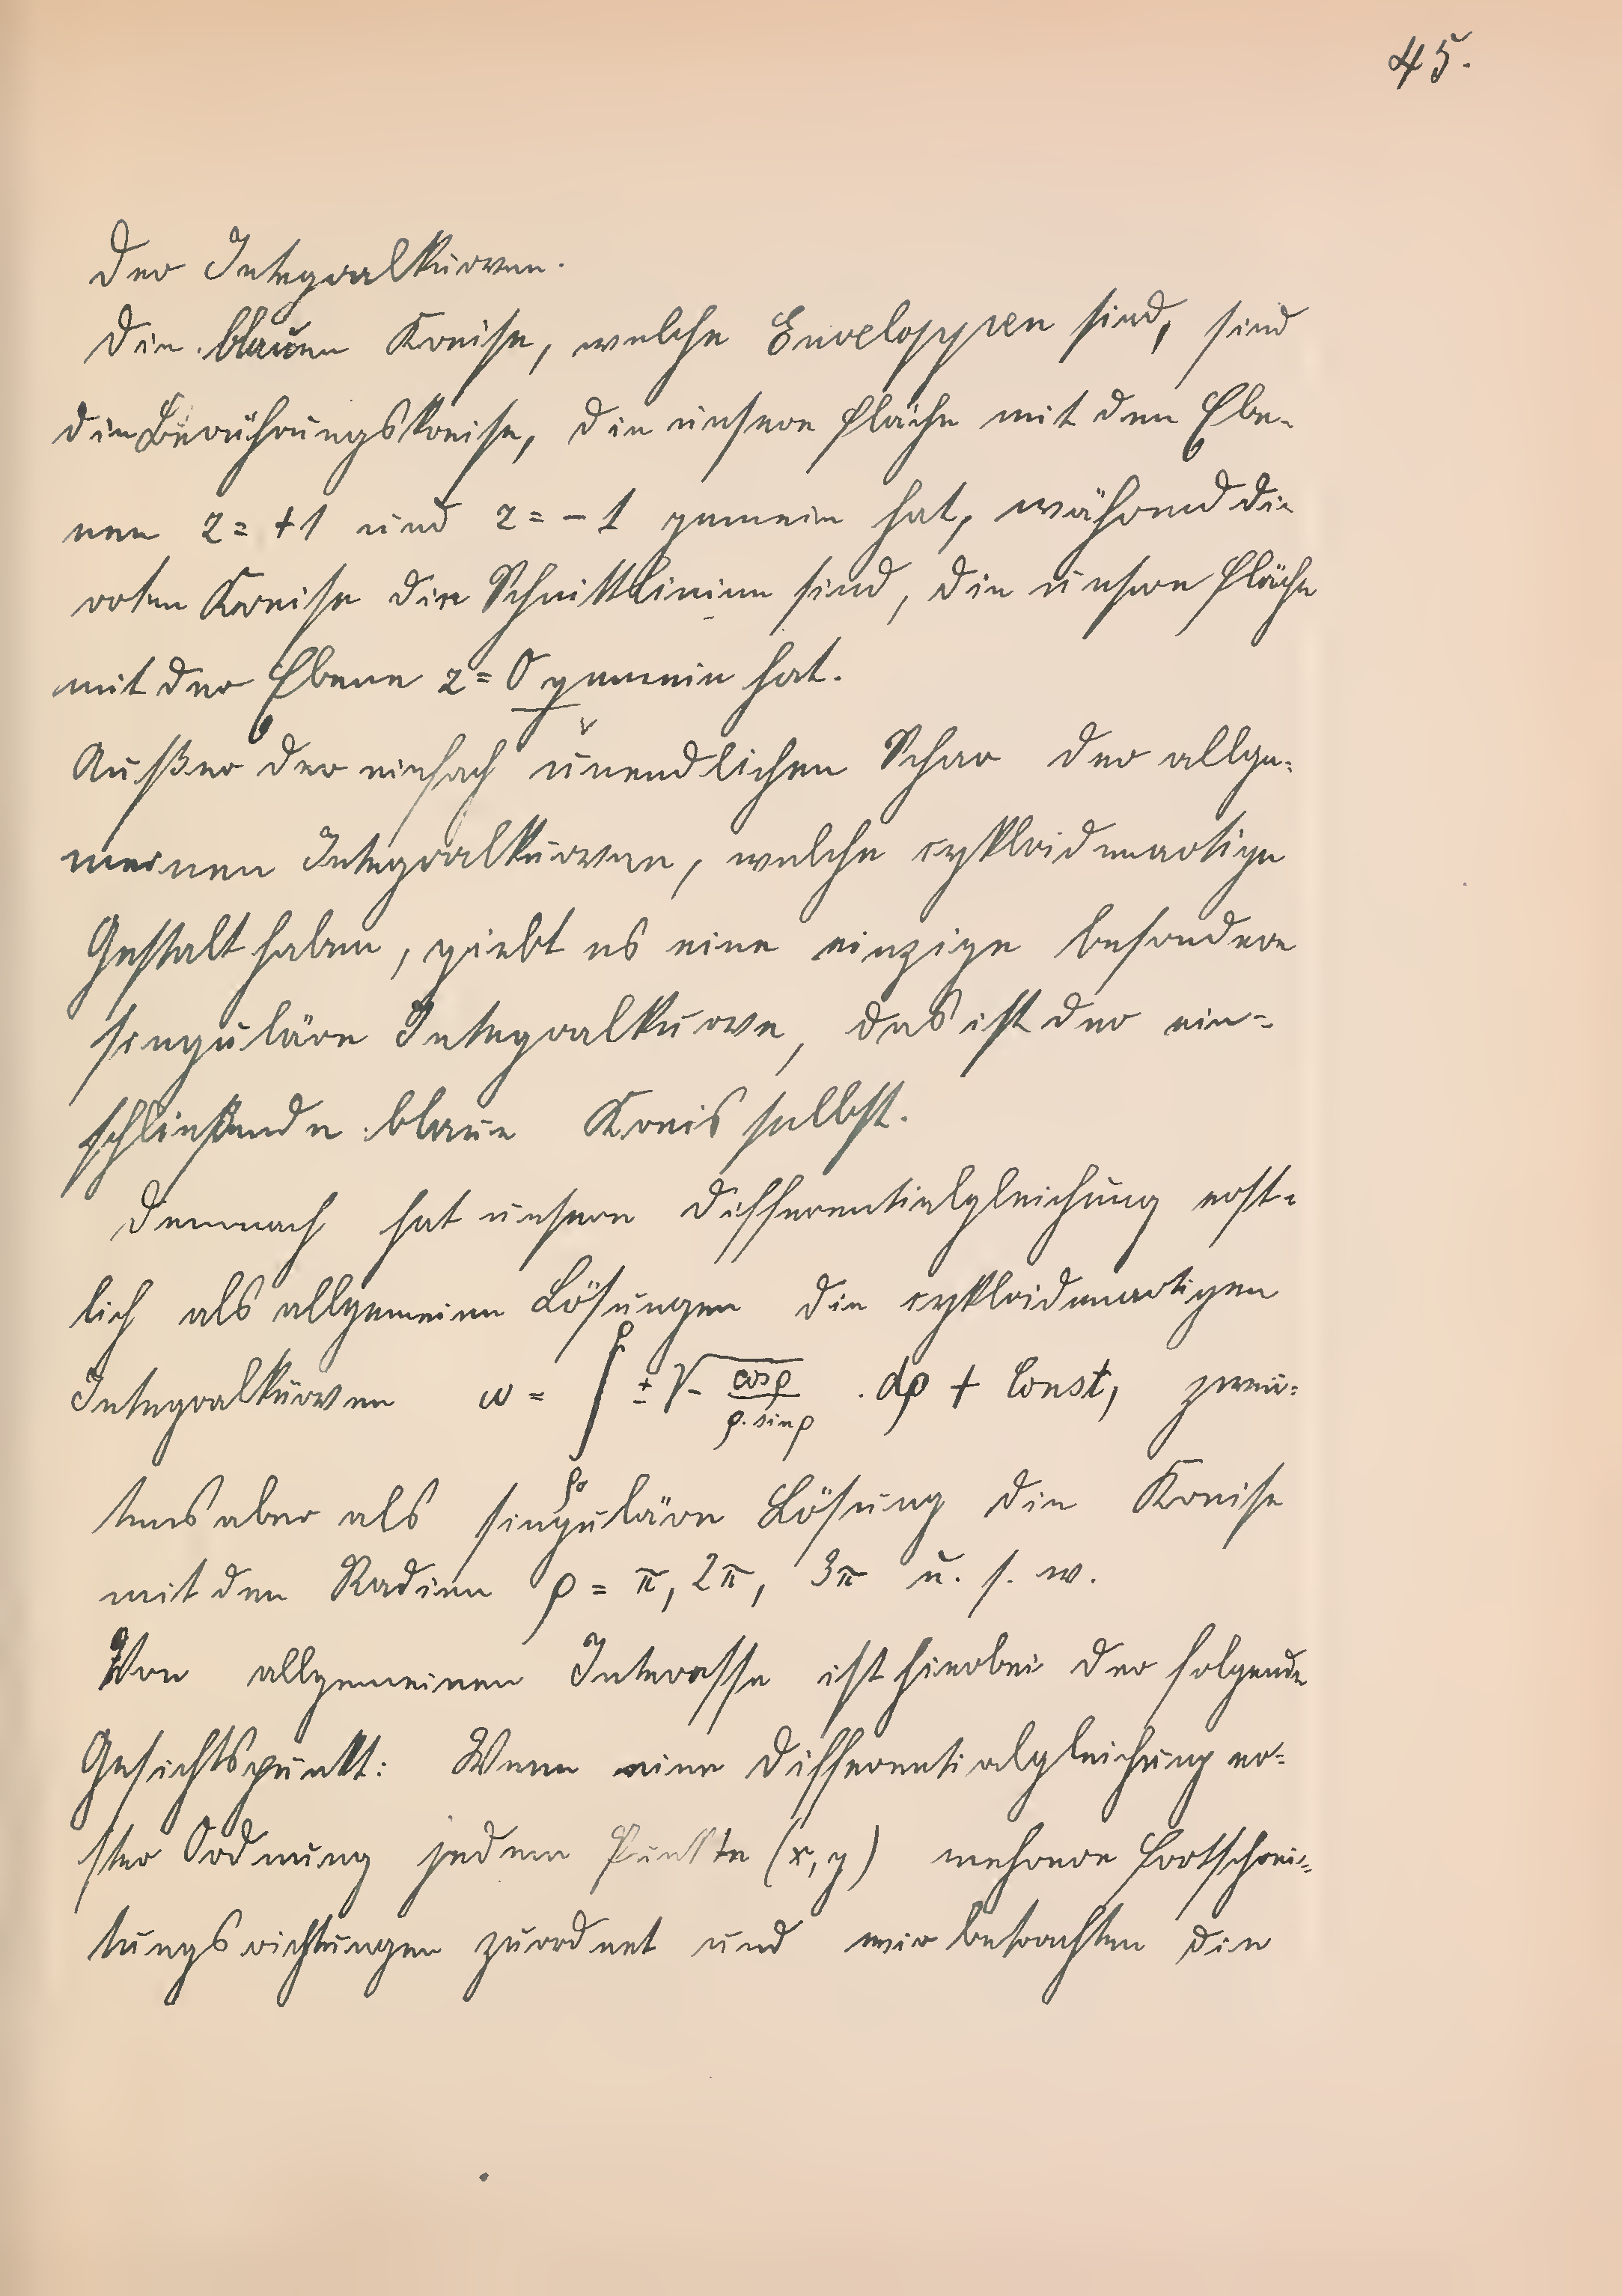 45.
der Integralkurven.
Die blauen Kreise, welche Enveloppen sind, sind
die Berührungskreise, die unsere Fläche mit den Ebe-
nen z = +1 und z = -1 gemein hat, während die
roten Kreise die Schnittlinien sind, die unsere Fläche
mit der Ebene z = 0 gemein hat.
Außer der einfach unendlichen Schar der allge-
meinen Integralkurven, welche cykloidenartige
Gestalt haben, giebt es eine einzige besondere
singuläre Integralkurve, das ist der ein-
schließende blaue Kreis selbst.
Demnach hat unsere Differentialgleichung erst-
lich als allgemeine Lösungen die cykloidenartigen
Integralkurven ω = ∫_{ρ₀}^{ρ} ± √(- cos ρ / (ρ · sin ρ)) . dρ + Const, zwei-
tens aber als singuläre Lösung die Kreise
mit den Radien ρ = π, 2π, 3π u. s. w.
Von allgemeinen Interesse ist hierbei der folgende
Gesichtspunkt: Wenn eine Differentialgleichung er-
ster Ordnung jedem Punkte (x, y) mehrere Fortschrei-
tungsrichtungen zuordnet und wir betrachten die